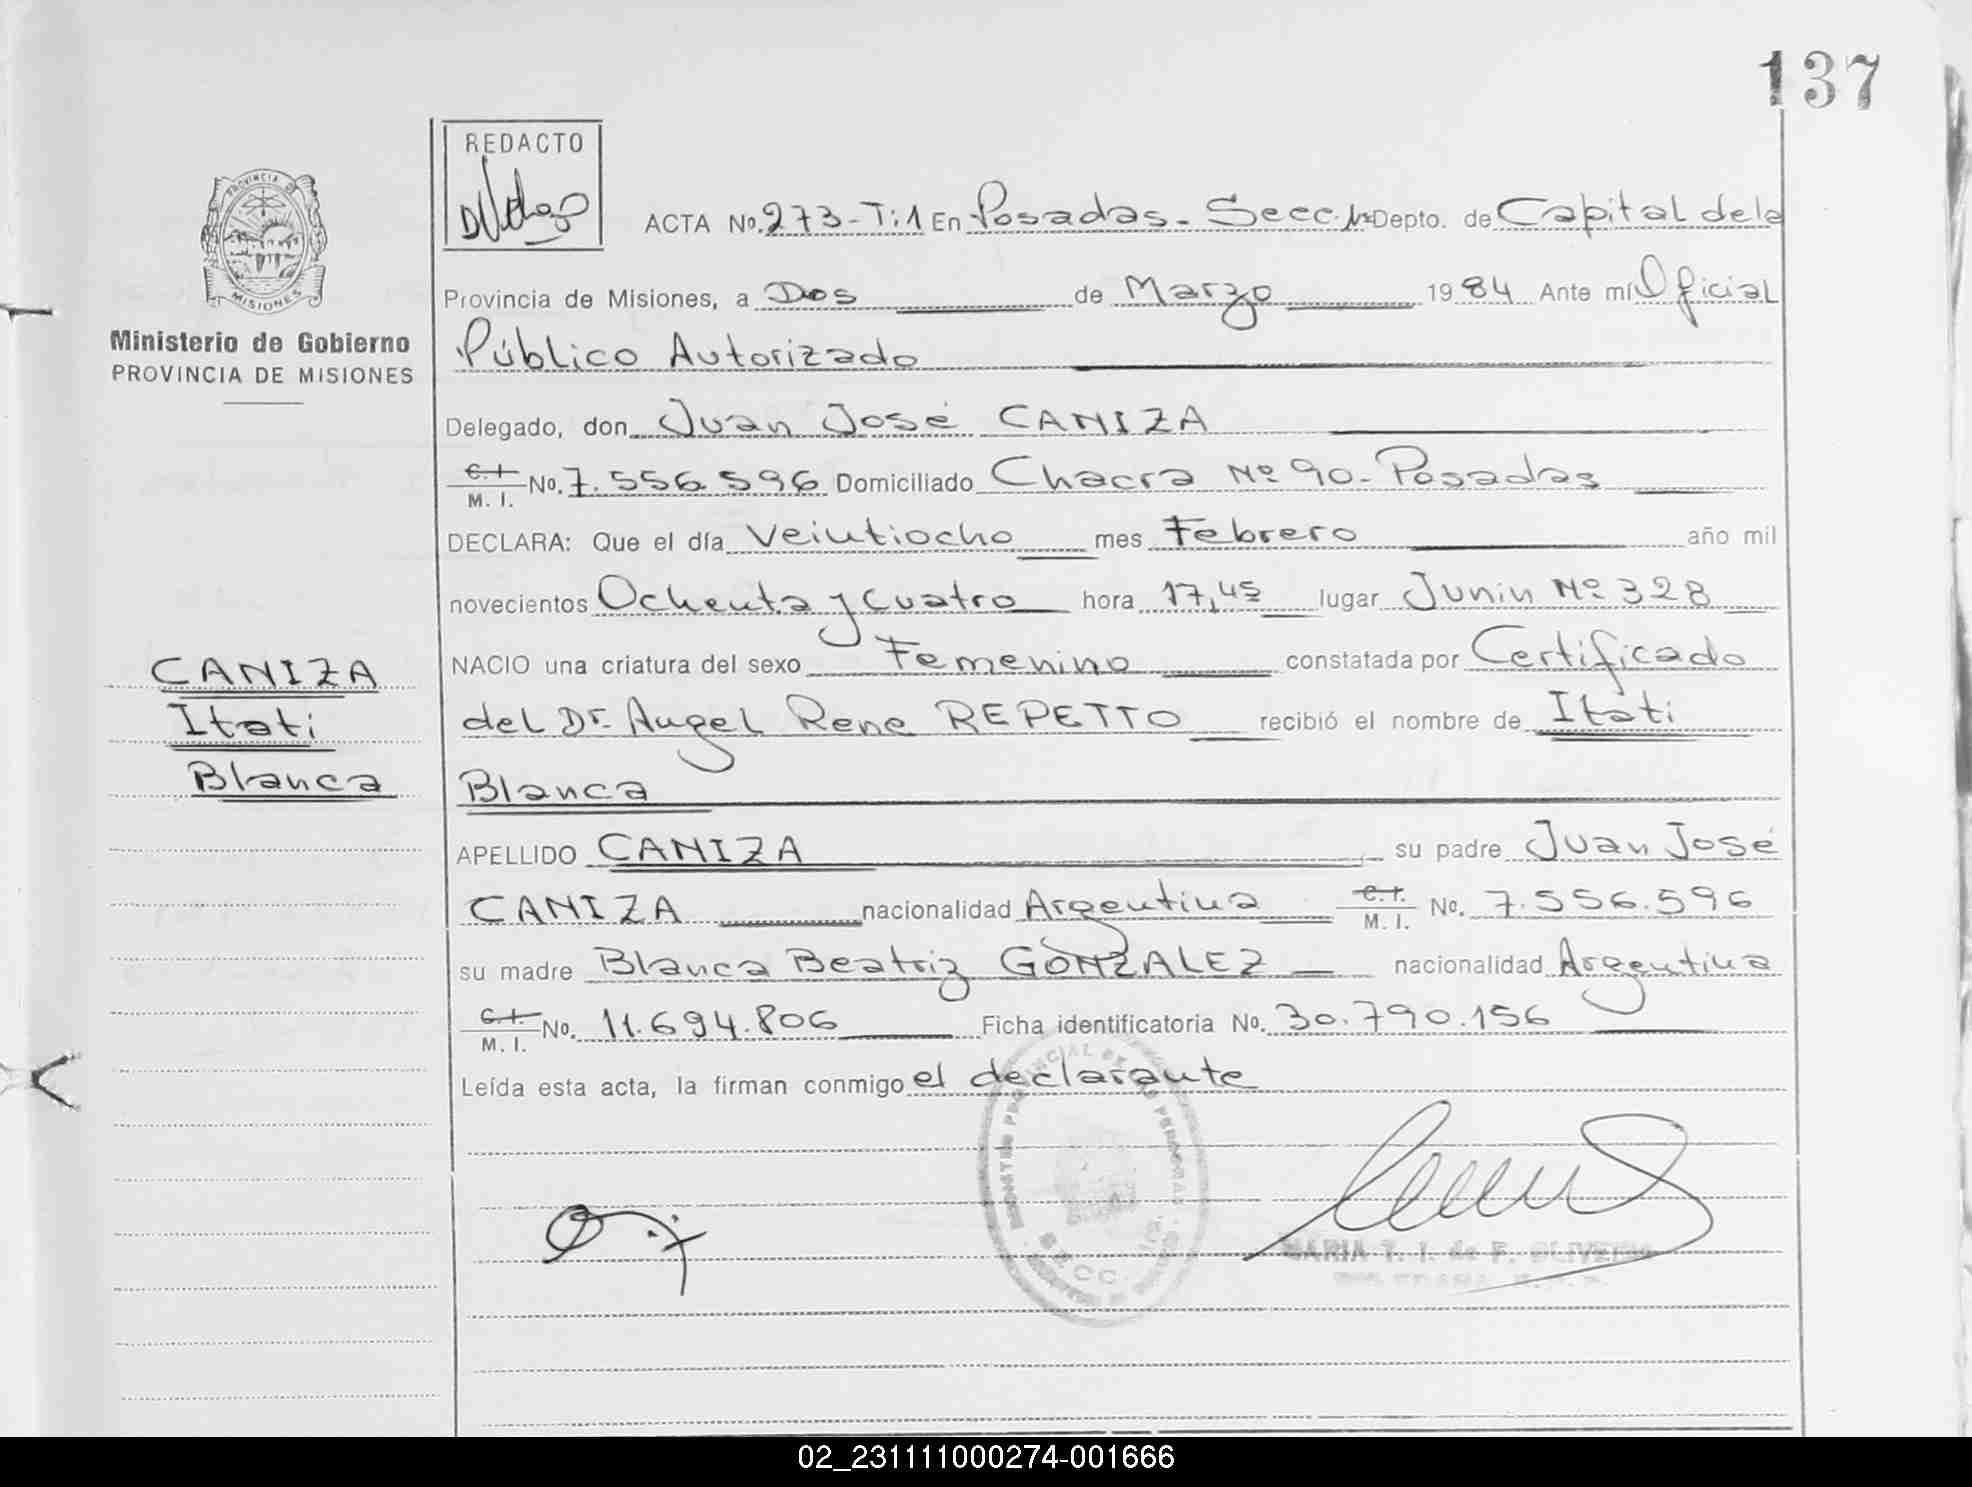 137
REDACTO
PROVINCIA DE
MISIONES
Ministerio de Gobierno
PROVINCIA DE MISIONES
ACTA No. 273-T:1 En Posadas - Secc. 1ª Depto. de Capital de la
Provincia de Misiones, a Dos de Marzo 1984 Ante mí Oficial
Público Autorizado
Delegado, don Juan José CANIZA
C.I. M. I. No. 7.556.596 Domiciliado Chacra Nº 90 - Posadas
DECLARA: Que el día Veintiocho mes Febrero año mil
novecientos Ochenta y Cuatro hora 17,45 lugar Junin Nº 328
NACIO una criatura del sexo Femenino constatada por Certificado
del Dr. Angel Rene REPETTO recibió el nombre de Itati
Blanca
CANIZA
Itati
Blanca
APELLIDO CANIZA su padre Juan José
CANIZA nacionalidad Argentina C.I. M. I. No. 7.556.596
su madre Blanca Beatriz GONZALEZ nacionalidad Argentina
C.I. M. I. No. 11.694.806 Ficha identificatoria No. 30.790.156
Leída esta acta, la firman conmigo el declarante
MARIA T. I. de F. OLIVEIRA
02_231111000274-001666